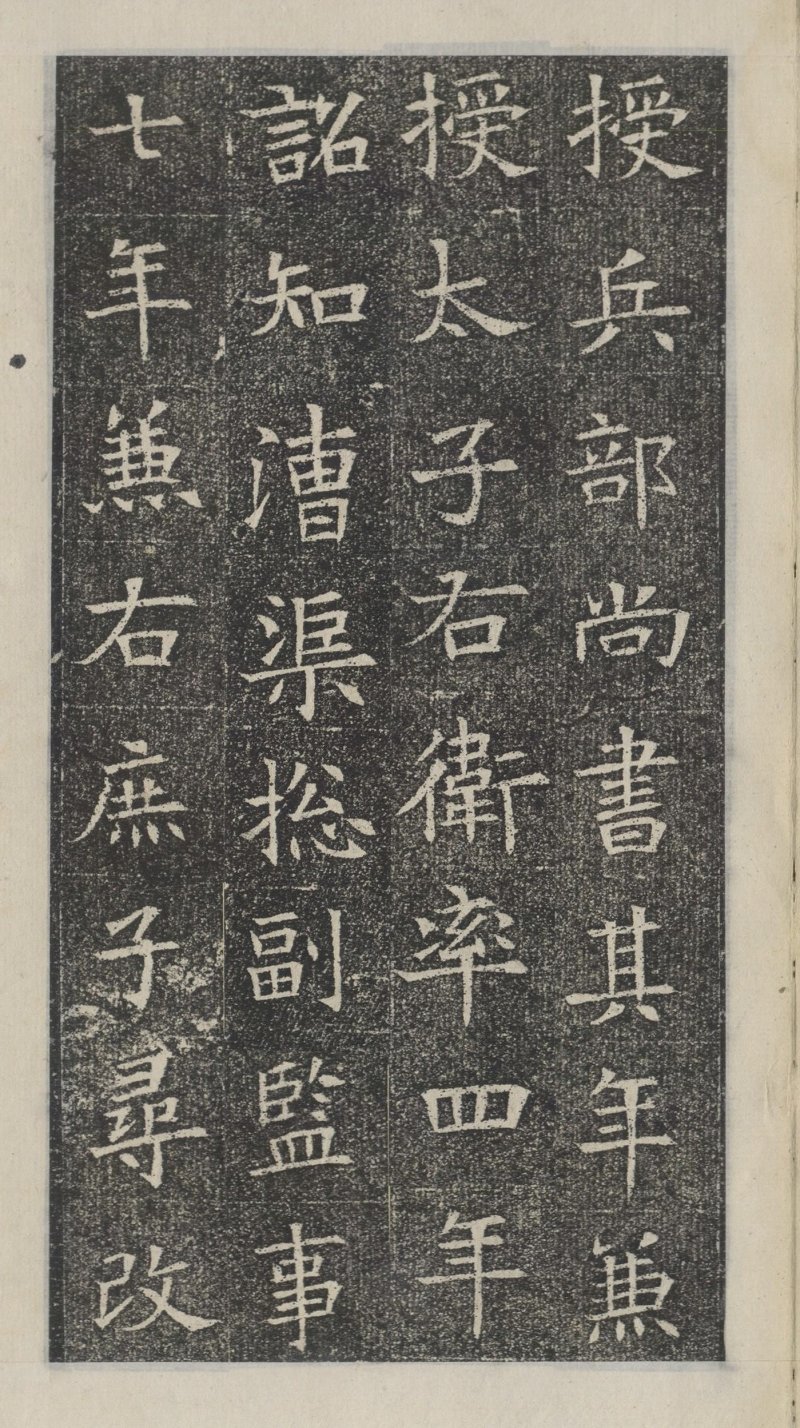 授兵部尚書其年兼
授太子右衛率四年
詔知漕渠総副監事
七年兼右庶子尋改